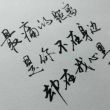 最痛的距离
是你不在身边
却在我心里